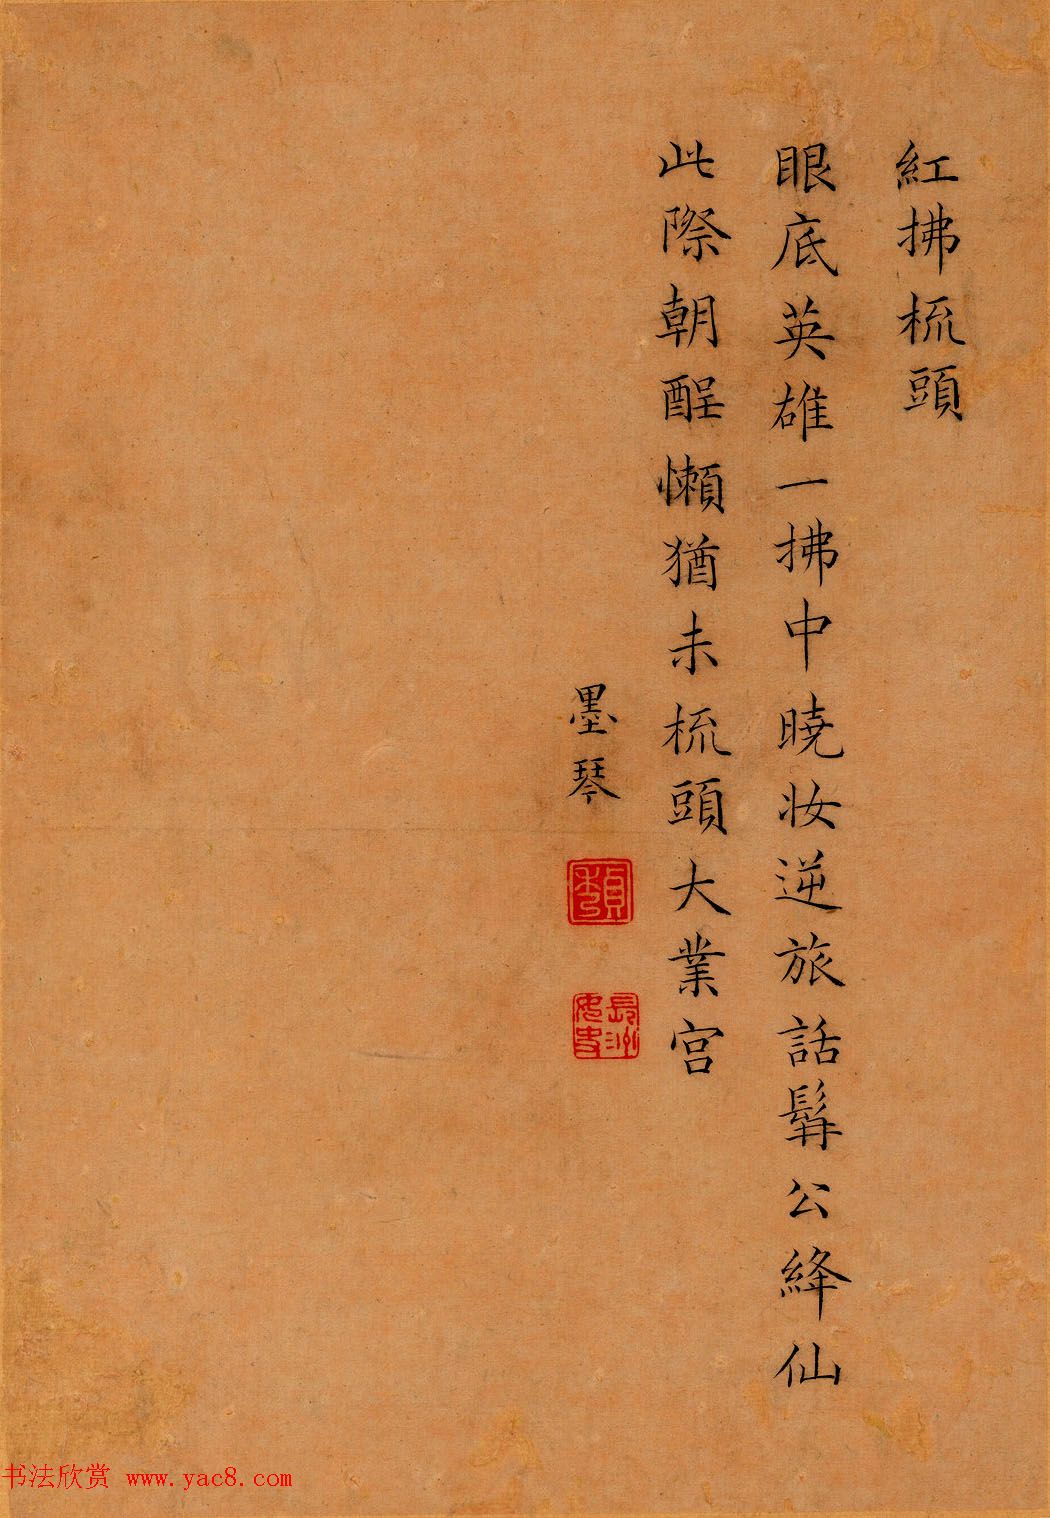 紅拂梳頭
眼底英雄一拂中暁妆逆旅話髯公絳仙
此際朝酲懶猶未梳頭大業宮
墨琴
長洲
书法欣赏 www.yac8.com